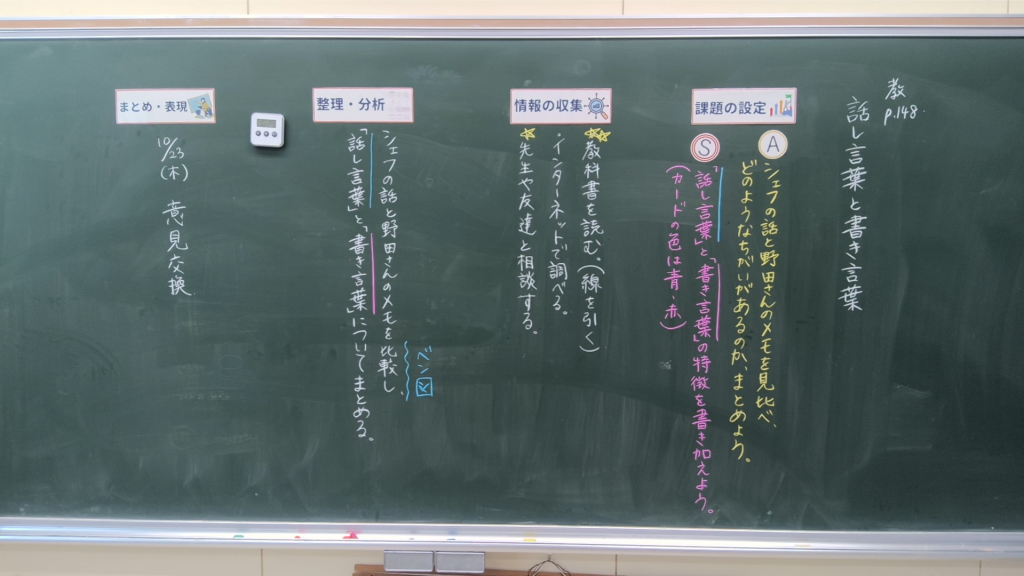 教
p.148
話し言葉と書き言葉
課題の設定
A
シェフの話と野田さんのメモを見比べ、
どのようなちがいがあるのか、まとめよう。
S
「話し言葉」と「書き言葉」の特徴を書き加えよう。
(カードの色は青、赤)
情報の収集
教科書を読む。(線を引く)
・インターネットで調べる。
先生や友達と相談する。
整理・分析
ベン図
シェフの話と野田さんのメモを比較し、
「話し言葉」と「書き言葉」についてまとめる。
まとめ・表現
10/23(木) 意見交換